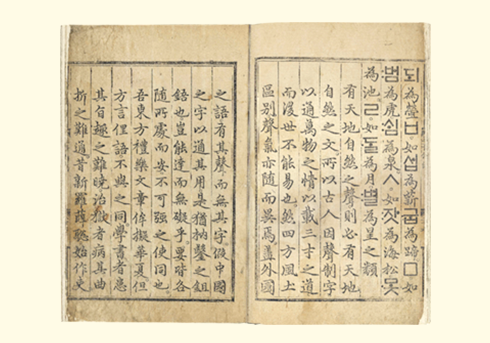 되為螢ㅂ如섭為薪굽為蹄ㅁ如
범為虎ᄉᆡᆷ為泉ㅅ如잣為海松못
為池ㄹ如ᄃᆞᆯ為月별為星之類
有天地自然之聲則必有天地
自然之文所以古人因聲制字
以通萬物之情以載三才之道
而後世不能易也然四方風土
區別聲氣亦隨而異焉蓋外國
之語有其聲而無其字假中國
之字以通其用是猶枘鑿之鉏
鋙也豈能達而無礙乎要皆各
隨所處而安不可强之使同也
吾東方禮樂文章侔擬華夏但
方言俚語不與之同學書者患
其旨趣之難曉治獄者病其曲
折之難通昔新羅薛聰始作吏